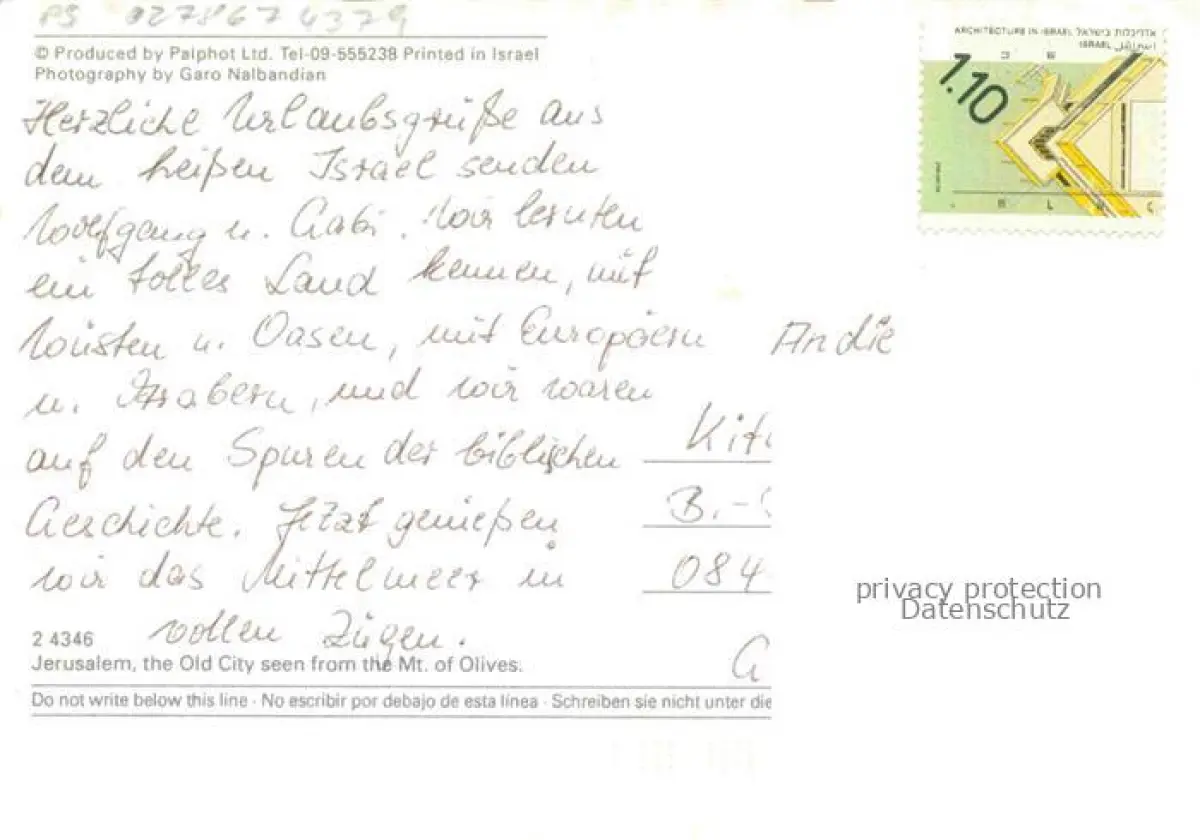 PS 027867 4379
© Produced by Palphot Ltd. Tel-09-555238 Printed in Israel
Photography by Garo Nalbandian
Herzliche Urlaubsgrüße aus
dem heißen Israel senden
Wolfgang u. Gabi. Wir lernten
ein tolles Land kennen, mit
Wüsten u. Oasen, mit Europäern
u. Arabern, und wir waren
auf den Spuren der biblischen
Geschichte. Jetzt genießen
wir das Mittelmeer in
vollen Zügen.
2 4346
Jerusalem, the Old City seen from the Mt. of Olives.
Do not write below this line · No escribir por debajo de esta línea · Schreiben sie nicht unter die
ARCHITECTURE IN ISRAEL אדריכלות בישראל
ISRAEL اسرائيل
1.10
An die
Kit
B.-
084
G
privacy protection
Datenschutz